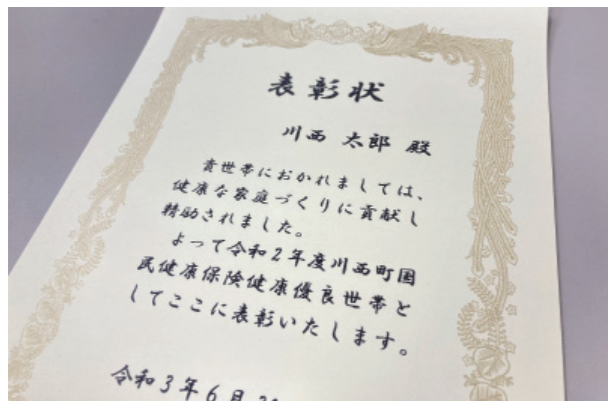 表彰状
川西 太郎 殿
貴世帯におかれましては、
健康な家庭づくりに貢献し
精励されました。
よって令和2年度川西町国
民健康保険健康優良世帯と
してここに表彰いたします。
令和3年6月